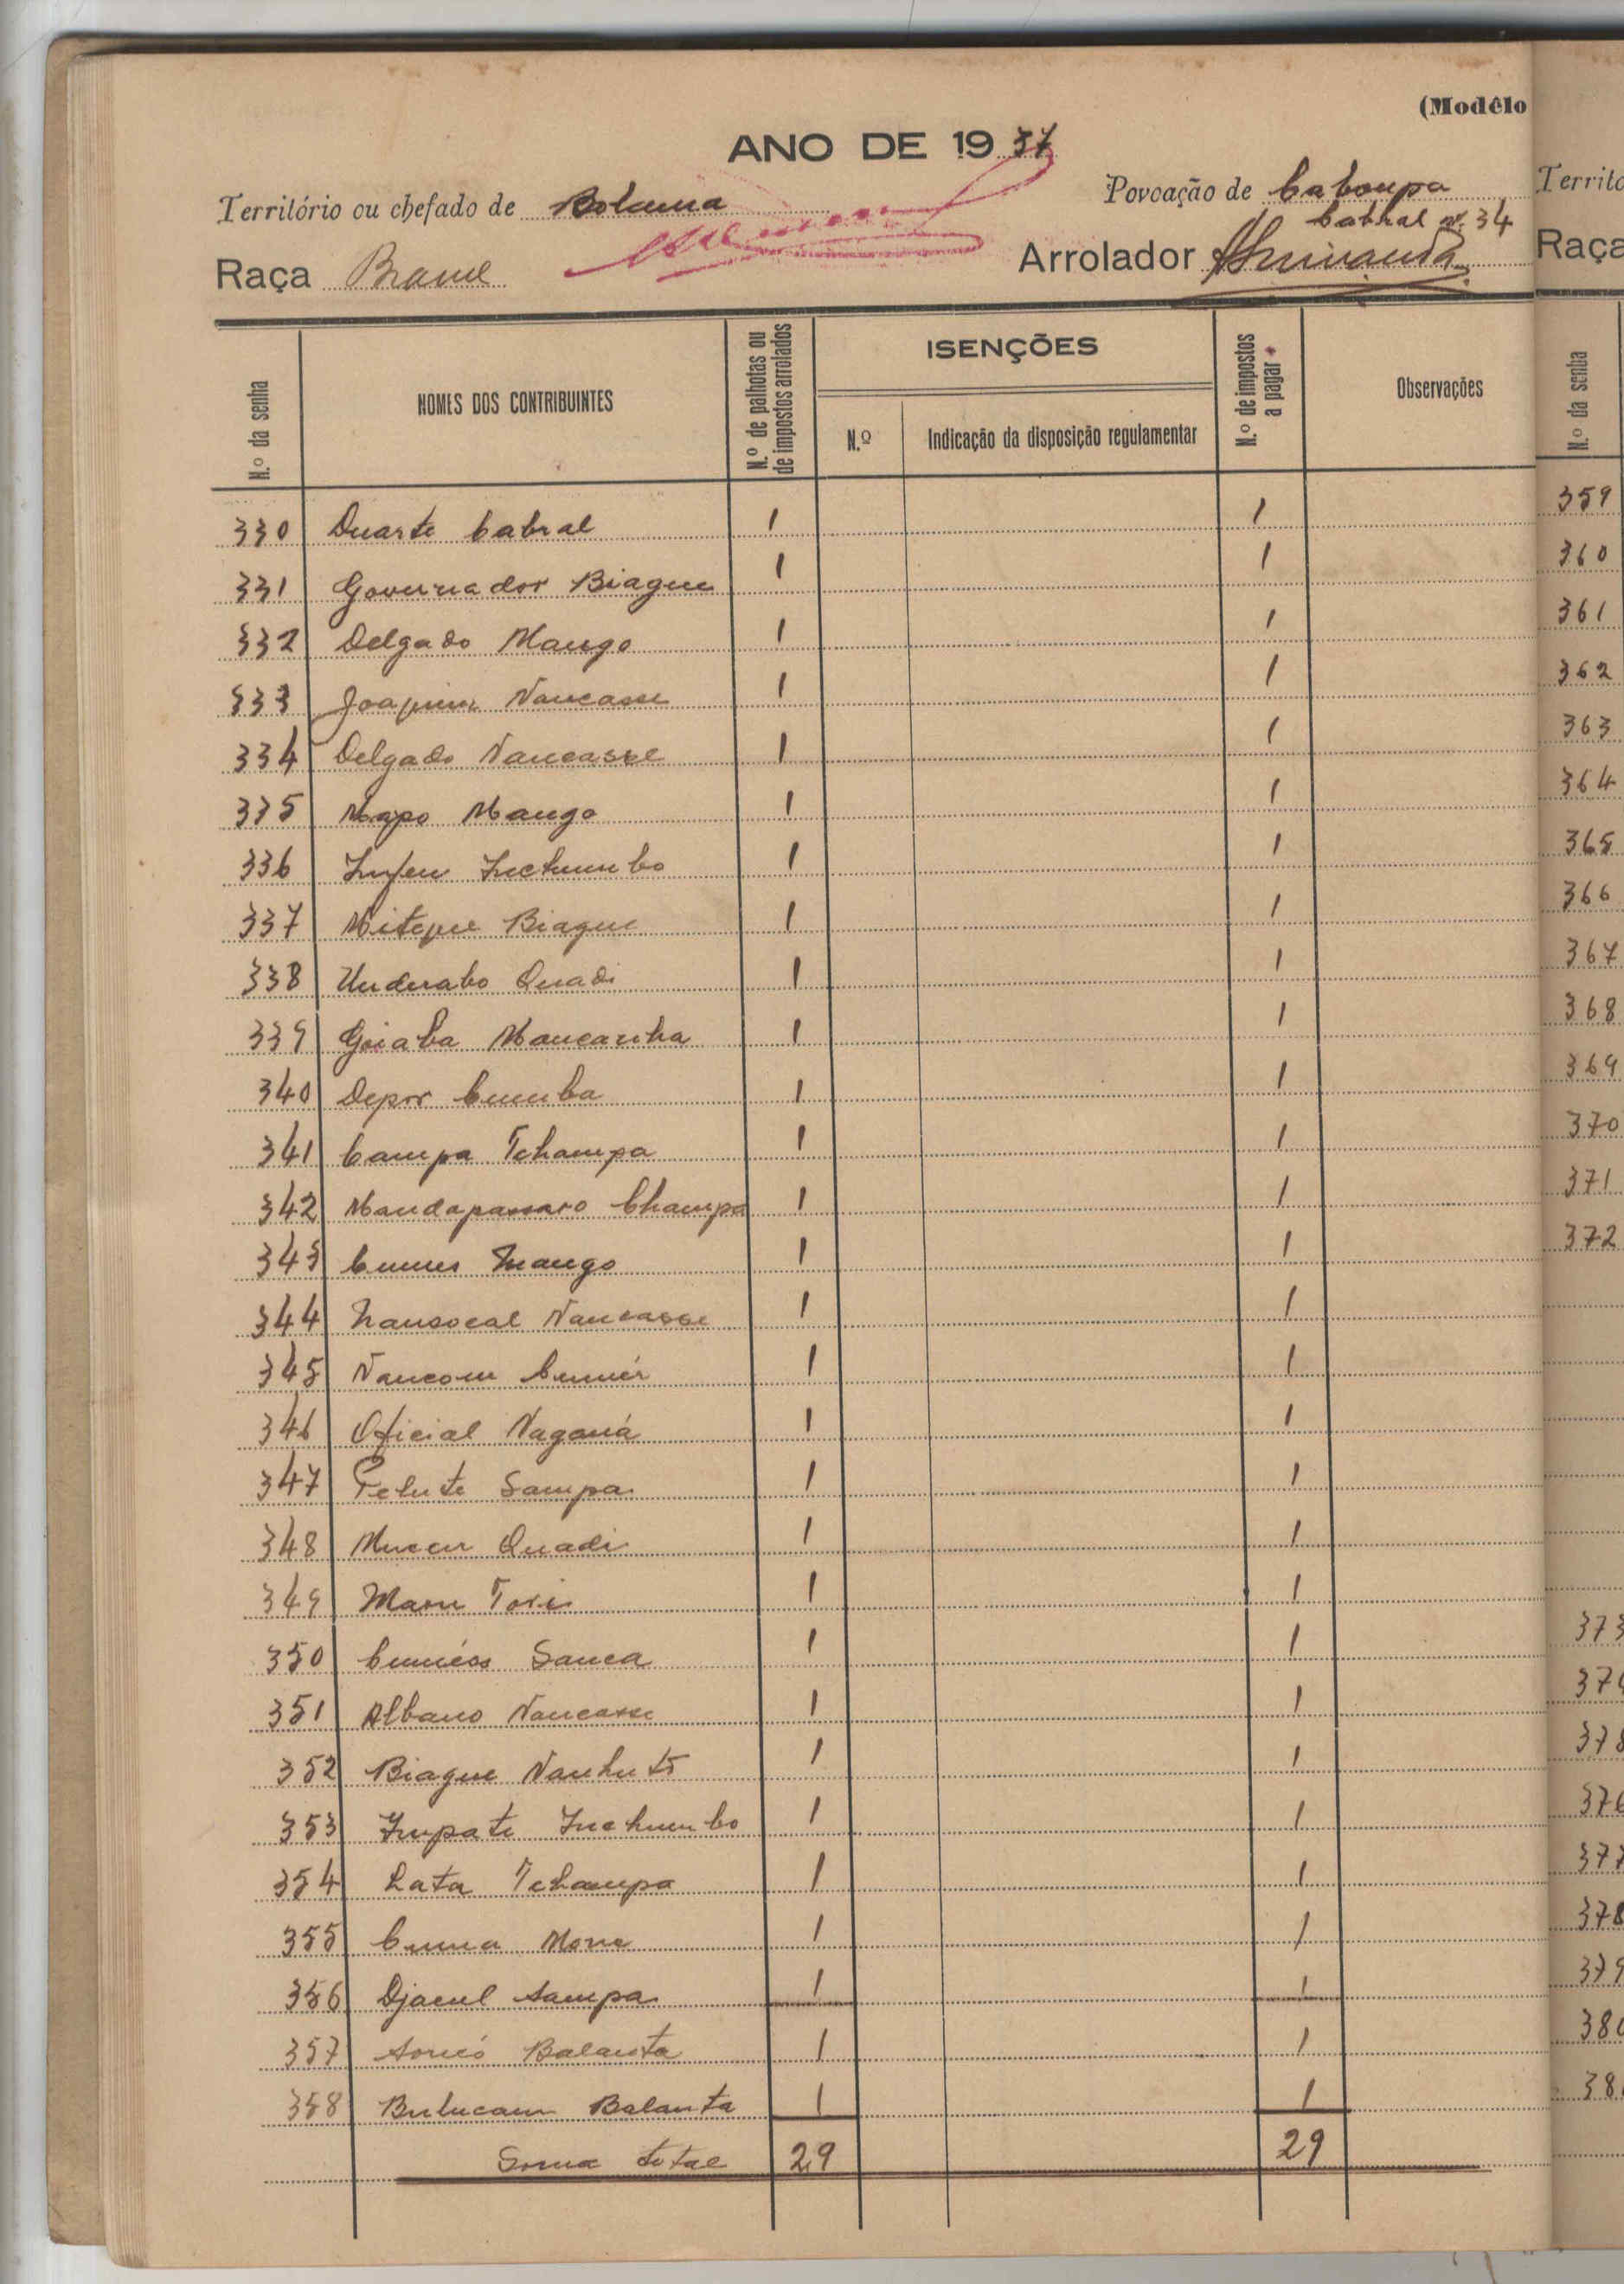 (Modêlo
ANO DE 1937
Território ou chefado de Bolama
Povoação de Caboupa
Cabral nº 34
Raça Brame
Arrolador
N.º da senha
NOMES DOS CONTRIBUINTES
N.º de palhotas ou de impostos arrolados
ISENÇÕES
N.º
Indicação da disposição regulamentar
N.º de impostos a pagar
Observações
330 Duarte Cabral 1 1
331 Governador Biague 1 1
332 Delgado Mango 1 1
333 Joaquim Nancasse 1 1
334 Delgado Nancasse 1 1
335 Mapo Mango 1 1
336 Inchumbo 1 1
337 Biague 1 1
338 Underabo Quadi 1 1
339 Goiaba Mancanha 1 1
340 Depor Cumba 1 1
341 Campa Tchampa 1 1
342 Mandapassaro Champa 1 1
343 Mango 1 1
344 Nancasse 1 1
345 Nancom 1 1
346 Oficial Naganá 1 1
347 Pelute Sampa 1 1
348 Quadi 1 1
349 1 1
350 Sanca 1 1
351 Albano Nancasse 1 1
352 Biague 1 1
353 Impate Inchumbo 1 1
354 Lata Tchampa 1 1
355 1 1
356 Sampa 1 1
357 Balanta 1 1
358 Bulucam Balanta 1 1
Soma total 29 29
Territó
Raça
N.º da senha
359
360
361
362
363
364
365
366
367
368
369
370
371
372
373
376
377
378
379